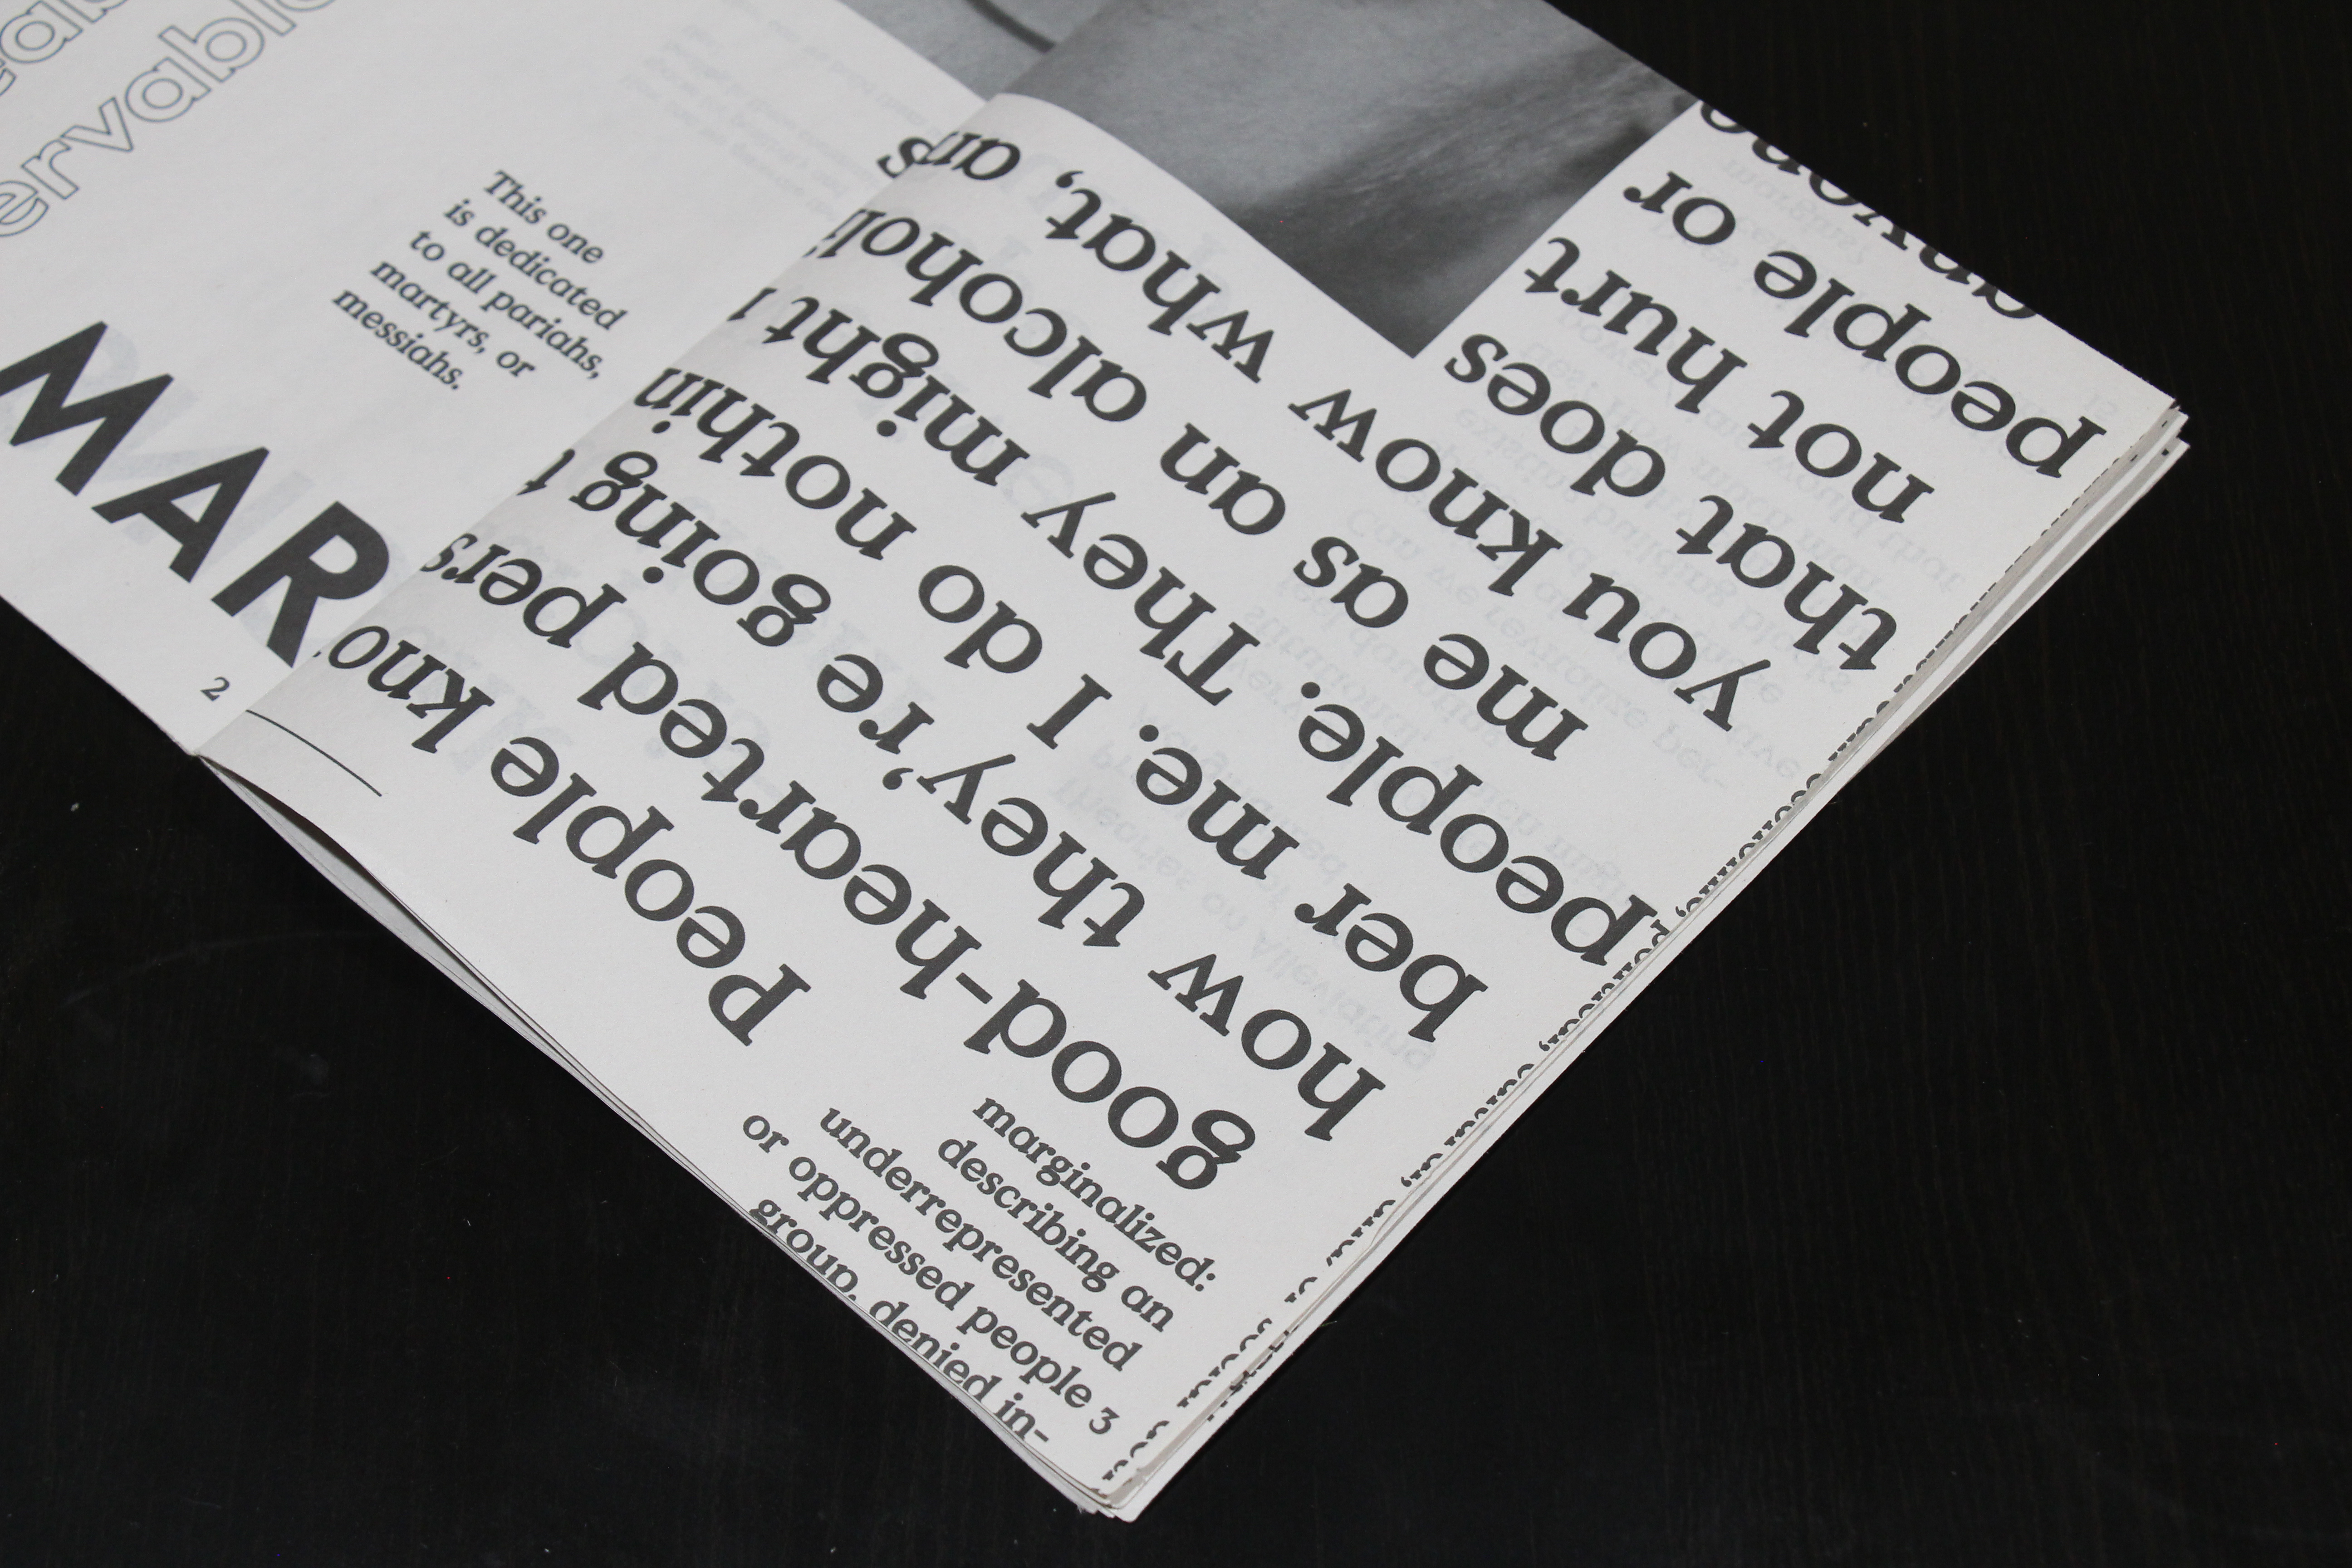 ervabl
This one
is dedicated
to all pariahs,
martyrs, or
messiahs.
MAR
2
People kno
good-hearted pers
how they're going t
ber me. I do nothin
people. They might
me as an alcoholi
you know what, a
that does
not hurt
people or
marginalized:
describing an
underrepresented
or oppressed people
group, denied in-
3